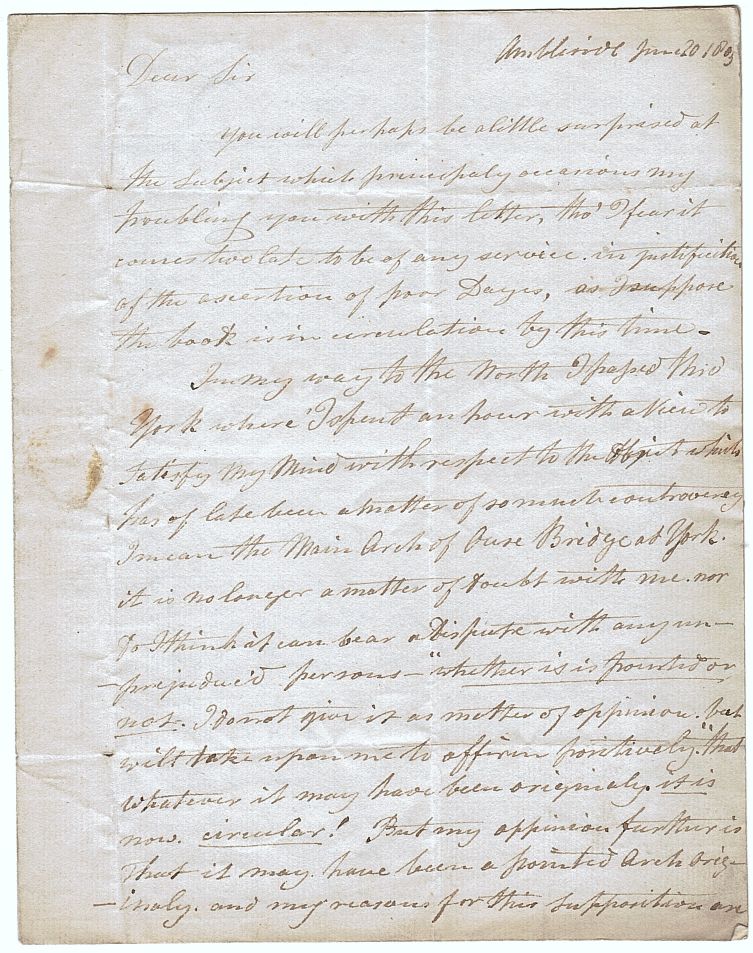 Ambleside June 20 1805
Dear Sir
You will perhaps be a little surprised at
the subject which principaly occasions my
troubling you with this letter, tho' I fear it
comes two late to be of any service. in justification
of the assertion of poor Dayes, as I suppose
the book is in circulation by this time –
In my way to the North I passed thro'
York where I spent an hour with a View to
satisfy my Mind with respect to the Object which
has of late been a matter of so much controversy
I mean the Main Arch of Ouse Bridge at York.
it is no longer a matter of Doubt with me. nor
Do I think it can bear a Dispute with any un–
–prejudic'd persons – "whether is is pointed or
not. I do not give it as matter of oppinion. but
will take upon me to affirm positively." that
whatever it may have been originaly. it is
now. circular! But my oppinion further is
That it may have been a pointed Arch orig–
–inaly. and my reasons for this supposition are